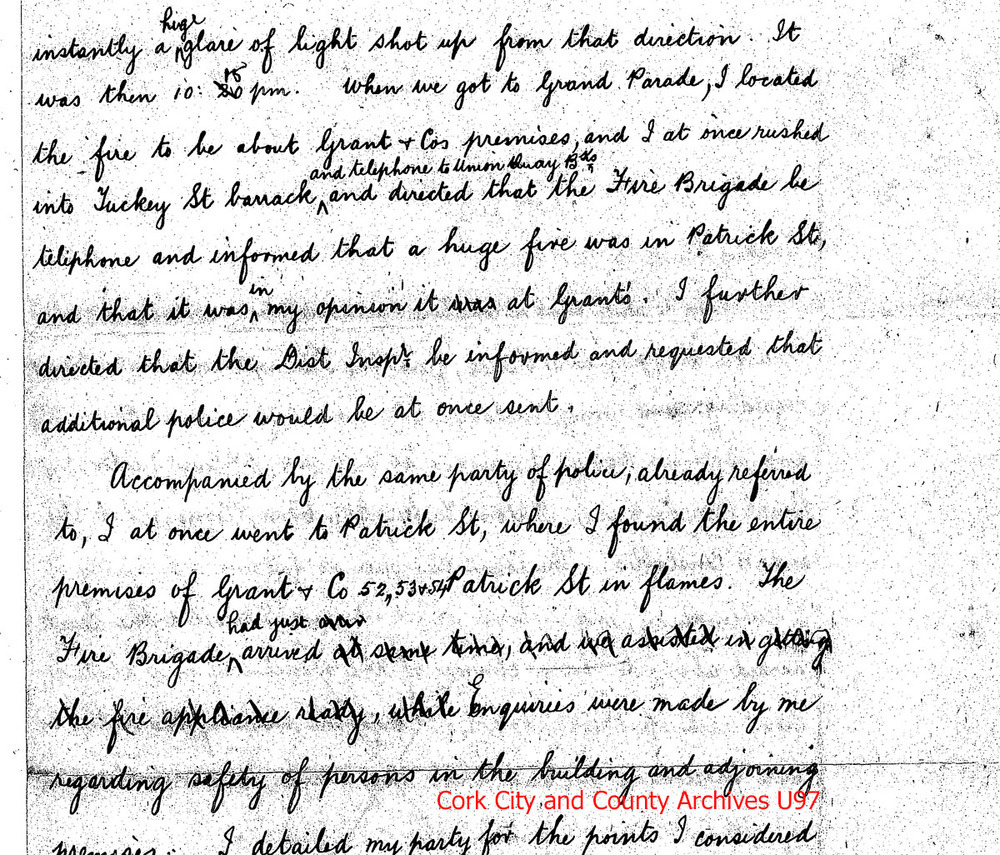 huge
instantly a glare of light shot up from that direction. It
15
was then 10: 20 pm. When we got to Grand Parade, I located
the fire to be about Grant & Cos premises, and I at once rushed
and telephone to Union Quay Bks
into Tuckey St barrack, and directed that the Fire Brigade be
telephone and informed that a huge fire was in Patrick St,
in
and that it was, my opinion it was at Grants'. I further
directed that the Dist Inspr. be informed and requested that
additional police would be at once sent.
Accompanied by the same party of police, already referred
to, I at once went to Patrick St, where I found the entire
premises of Grant & Co 52, 53 & 54 Patrick St in flames. The
had just
Fire Brigade, arrived at same time, and we assisted in getting
the fire appliance ready, while Enquiries were made by me
regarding safety of persons in the building and adjoining
Cork City and County Archives U97
premises. I detailed my party for the points I considered